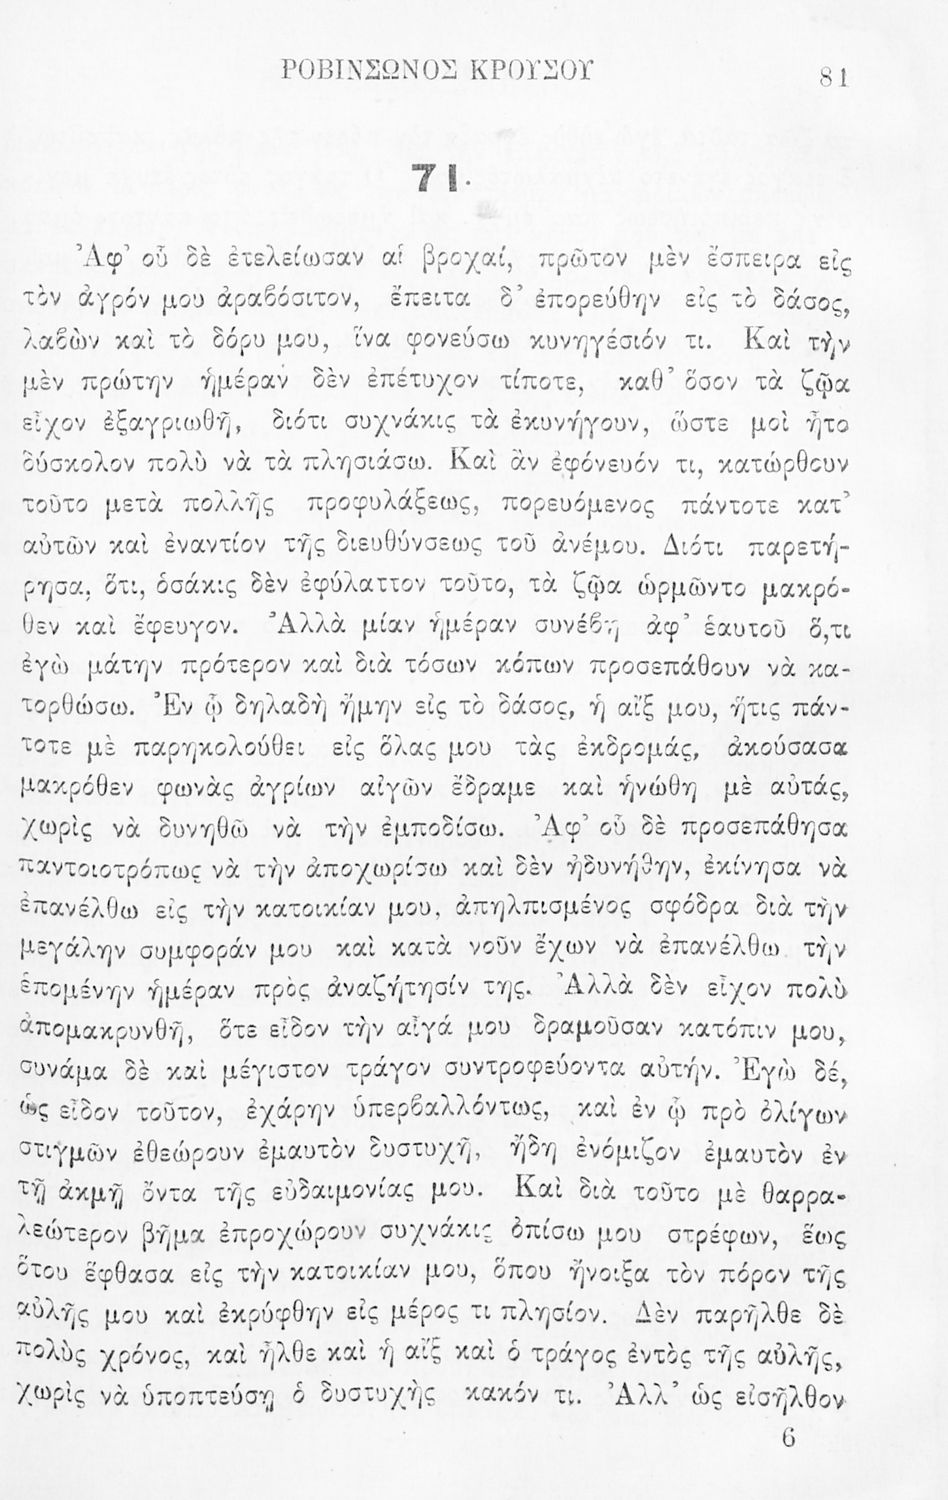 ΡΟΒΙΝΣΩΝΟΣ ΚΡΟΥΣΟΥ
81
71.
Ἀφ’ οὗ δὲ ἐτελείωσαν αἱ βροχαί, πρῶτον μὲν ἔσπειρα εἰς
τὸν ἀγρόν μου ἀραβόσιτον, ἔπειτα δ’ ἐπορεύθην εἰς τὸ δάσος,
λαβὼν καὶ τὸ δόρυ μου, ἵνα φονεύσω κυνηγέσιόν τι. Καὶ τὴν
μὲν πρώτην ἡμέραν δὲν ἐπέτυχον τίποτε, καθ’ ὅσον τὰ ζῷα
εἶχον ἐξαγριωθῆ, διότι συχνάκις τὰ ἐκυνήγουν, ὥστε μοὶ ἦτο
δύσκολον πολὺ νὰ τὰ πλησιάσω. Καὶ ἂν ἐφόνευόν τι, κατώρθουν
τοῦτο μετὰ πολλῆς προφυλάξεως, πορευόμενος πάντοτε κατ’
αὐτῶν καὶ ἐναντίον τῆς διευθύνσεως τοῦ ἀνέμου. Διότι παρετή-
ρησα, ὅτι, ὁσάκις δὲν ἐφύλαττον τοῦτο, τὰ ζῷα ὡρμῶντο μακρό-
θεν καὶ ἔφευγον. Ἀλλὰ μίαν ἡμέραν συνέβη ἀφ’ ἑαυτοῦ ὅ,τι
ἐγὼ μάτην πρότερον καὶ διὰ τόσων κόπων προσεπάθουν νὰ κα-
τορθώσω. Ἐν ᾧ δηλαδὴ ἤμην εἰς τὸ δάσος, ἡ αἴξ μου, ἥτις πάν-
τοτε μὲ παρηκολούθει εἰς ὅλας μου τὰς ἐκδρομάς, ἀκούσασα
μακρόθεν φωνὰς ἀγρίων αἰγῶν ἔδραμε καὶ ἡνώθη μὲ αὐτάς,
χωρὶς νὰ δυνηθῶ νὰ τὴν ἐμποδίσω. Ἀφ’ οὗ δὲ προσεπάθησα
παντοιοτρόπως νὰ τὴν ἀποχωρίσω καὶ δὲν ἠδυνήθην, ἐκίνησα νὰ
ἐπανέλθω εἰς τὴν κατοικίαν μου, ἀπηλπισμένος σφόδρα διὰ τὴν
μεγάλην συμφοράν μου καὶ κατὰ νοῦν ἔχων νὰ ἐπανέλθω τὴν
ἑπομένην ἡμέραν πρὸς ἀναζήτησίν της. Ἀλλὰ δὲν εἶχον πολὺ
ἀπομακρυνθῆ, ὅτε εἶδον τὴν αἶγά μου δραμοῦσαν κατόπιν μου,
συνάμα δὲ καὶ μέγιστον τράγον συντροφεύοντα αὐτήν. Ἐγὼ δέ,
ὡς εἶδον τοῦτον, ἐχάρην ὑπερβαλλόντως, καὶ ἐν ᾧ πρὸ ὀλίγων
στιγμῶν ἐθεώρουν ἐμαυτὸν δυστυχῆ, ἤδη ἐνόμιζον ἐμαυτὸν ἐν
τῇ ἀκμῇ ὄντα τῆς εὐδαιμονίας μου. Καὶ διὰ τοῦτο μὲ θαρρα-
λεώτερον βῆμα ἐπροχώρουν συχνάκις ὀπίσω μου στρέφων, ἕως
ὅτου ἔφθασα εἰς τὴν κατοικίαν μου, ὅπου ἤνοιξα τὸν πόρον τῆς
αὐλῆς μου καὶ ἐκρύφθην εἰς μέρος τι πλησίον. Δὲν παρῆλθε δὲ
πολὺς χρόνος, καὶ ἦλθε καὶ ἡ αἴξ καὶ ὁ τράγος ἐντὸς τῆς αὐλῆς,
χωρὶς νὰ ὑποπτεύσῃ ὁ δυστυχὴς κακόν τι. Ἀλλ’ ὡς εἰσῆλθον
6